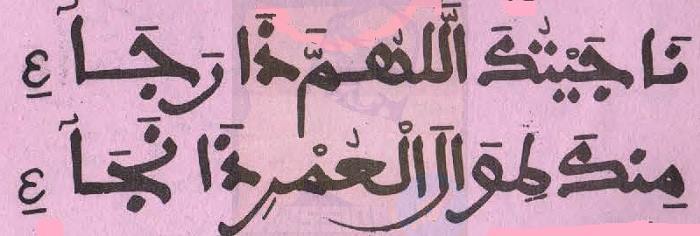 نَاجَيْتُكَ اَللَّهُمَّ ذَا رَجَاءٍ
مِنكَ طِوَالَ الْعُمْرِ ذَا نَجَاءٍ